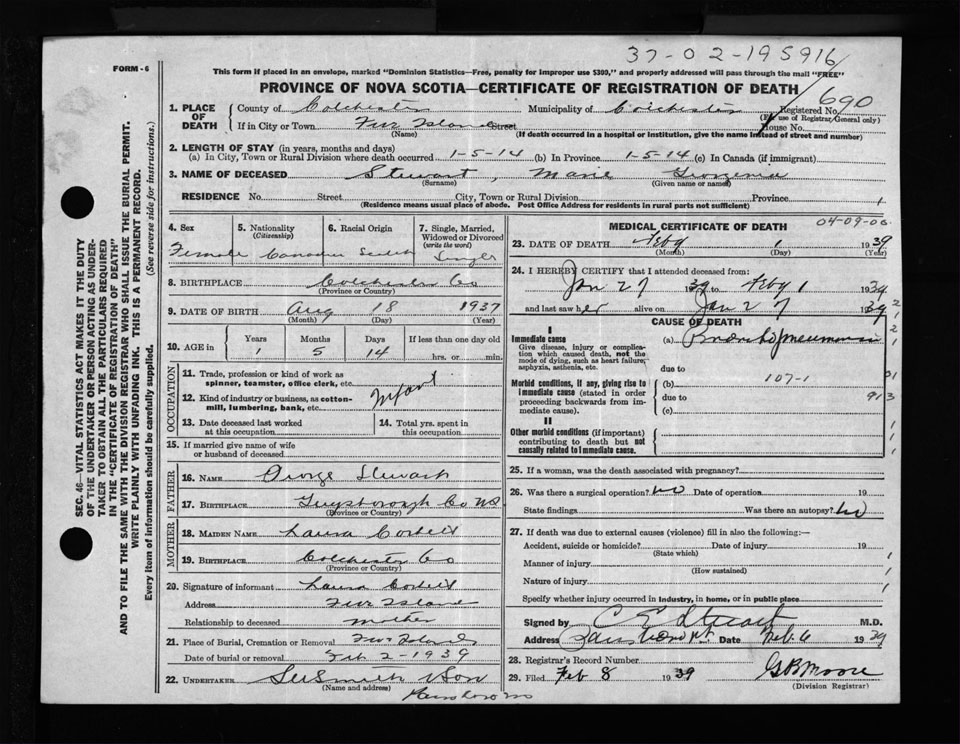 37-02-195916
FORM - 6
This form if placed in an envelope, marked "Dominion Statistics—Free, penalty for improper use $300," and properly addressed will pass through the mail "FREE"
PROVINCE OF NOVA SCOTIA—CERTIFICATE OF REGISTRATION OF DEATH
690
1. PLACE OF DEATH County of Colchester Municipality of Colchester Registered No.
(For use of Registrar General only)
If in City or Town Five Islands Street House No.
(Name) (If death occurred in a hospital or institution, give the name instead of street and number)
2. LENGTH OF STAY (in years, months and days)
(a) In City, Town or Rural Division where death occurred 1-5-14 (b) In Province 1-5-14 (c) In Canada (if immigrant)
3. NAME OF DECEASED Stewart, Marie Georgenia
(Surname) (Given name or names)
RESIDENCE No. Street City, Town or Rural Division Province 1
(Residence means usual place of abode. Post Office Address for residents in rural parts not sufficient)
4. Sex Female
5. Nationality (Citizenship) Canadian
6. Racial Origin Scotch
7. Single, Married, Widowed or Divorced (write the word) Single
8. BIRTHPLACE Colchester Co
(Province or Country)
9. DATE OF BIRTH Aug 18 1937
(Month) (Day) (Year)
10. AGE in Years Months Days If less than one day old
1 5 14 hrs. or min.
OCCUPATION
11. Trade, profession or kind of work as spinner, teamster, office clerk, etc.
12. Kind of industry or business, as cotton-mill, lumbering, bank, etc. Infant
13. Date deceased last worked at this occupation
14. Total yrs. spent in this occupation
15. If married give name of wife or husband of deceased
FATHER
16. NAME George Stewart
17. BIRTHPLACE Guysborough Co NS
(Province or Country)
MOTHER
18. MAIDEN NAME Laura Corbett
19. BIRTHPLACE Colchester Co
(Province or Country)
20. Signature of informant Laura Corbett
Address Five Islands
Relationship to deceased mother
21. Place of Burial, Cremation or Removal Five Islands
Date of burial or removal Feb 2-1939
22. UNDERTAKER Smith & Son
(Name and address)
04-09-00
MEDICAL CERTIFICATE OF DEATH
23. DATE OF DEATH Feby 1 1939
(Month) (Day) (Year)
24. I HEREBY CERTIFY that I attended deceased from:
Jan 27 1939 to Feby 1 1939
and last saw her alive on Jan 27 1939
CAUSE OF DEATH
I
Immediate cause
Give disease, injury or complication which caused death, not the mode of dying, such as heart failure, asphyxia, asthenia, etc.
(a) Broncho pneumonia
due to
Morbid conditions, if any, giving rise to immediate cause (stated in order proceeding backwards from immediate cause).
(b) 107-1
due to
(c)
II
Other morbid conditions (if important) contributing to death but not causally related to immediate cause.
25. If a woman, was the death associated with pregnancy?
26. Was there a surgical operation? No Date of operation 19
State findings Was there an autopsy? No
27. If death was due to external causes (violence) fill in also the following:—
Accident, suicide or homicide? Date of injury 19
(State which)
Manner of injury
(How sustained)
Nature of injury
Specify whether injury occurred in industry, in home, or in public place
Signed by C E Stuart M.D.
Address Date Feb 6 1939
28. Registrar's Record Number
29. Filed Feb 8 1939 G B Moore
(Division Registrar)
SEC. 46—VITAL STATISTICS ACT MAKES IT THE DUTY
OF THE UNDERTAKER OR PERSON ACTING AS UNDERTAKER TO OBTAIN ALL THE PARTICULARS REQUIRED
IN THE "CERTIFICATE OF REGISTRATION OF DEATH"
AND TO FILE THE SAME WITH THE DIVISION REGISTRAR WHO SHALL ISSUE THE BURIAL PERMIT.
WRITE PLAINLY WITH UNFADING INK. THIS IS A PERMANENT RECORD.
Every item of information should be carefully supplied. (See reverse side for instructions.)